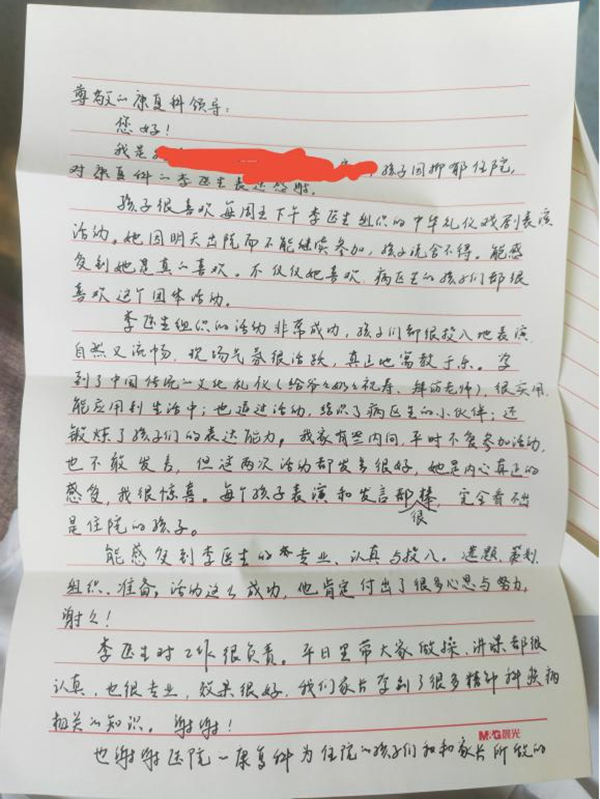 尊敬的康复科领导：
您好！
我是 孩子因抑郁住院，
对康复科的李医生表达感谢。
孩子很喜欢每周五下午李医生组织的中华礼仪戏剧表演
活动。她因明天出院而不能继续参加，孩子说舍不得。能感
受到她是真的喜欢。不仅仅她喜欢，病区里的孩子们都很
喜欢这个团体活动。
李医生组织的活动非常成功，孩子们都很投入地表演，
自然又流畅，现场气氛很活跃，真正地寓教于乐。学
到了中国传统文化礼仪（给爷爷奶奶祝寿、拜访老师），很实用，
能应用到生活中；也通过活动，结识了病区里的小伙伴；还
锻炼了孩子们的表达能力。我家有些内向，平时不爱参加活动，
也不敢发言，但这两次活动都发言很好，她是内心真正的
感受，我很惊喜。每个孩子表演和发言都很棒，完全看不出
是住院的孩子。
能感受到李医生的专业、认真与投入。选题、策划、
组织、准备。活动这么成功，他肯定付出了很多心思与努力，
谢谢！
李医生对工作很负责。平日里带大家做操、讲课都很
认真，也很专业，效果很好，我们家长学到了很多精神科疾病
相关的知识。谢谢！
M&G晨光
也谢谢医院康复科为住院的孩子们和和家长所做的